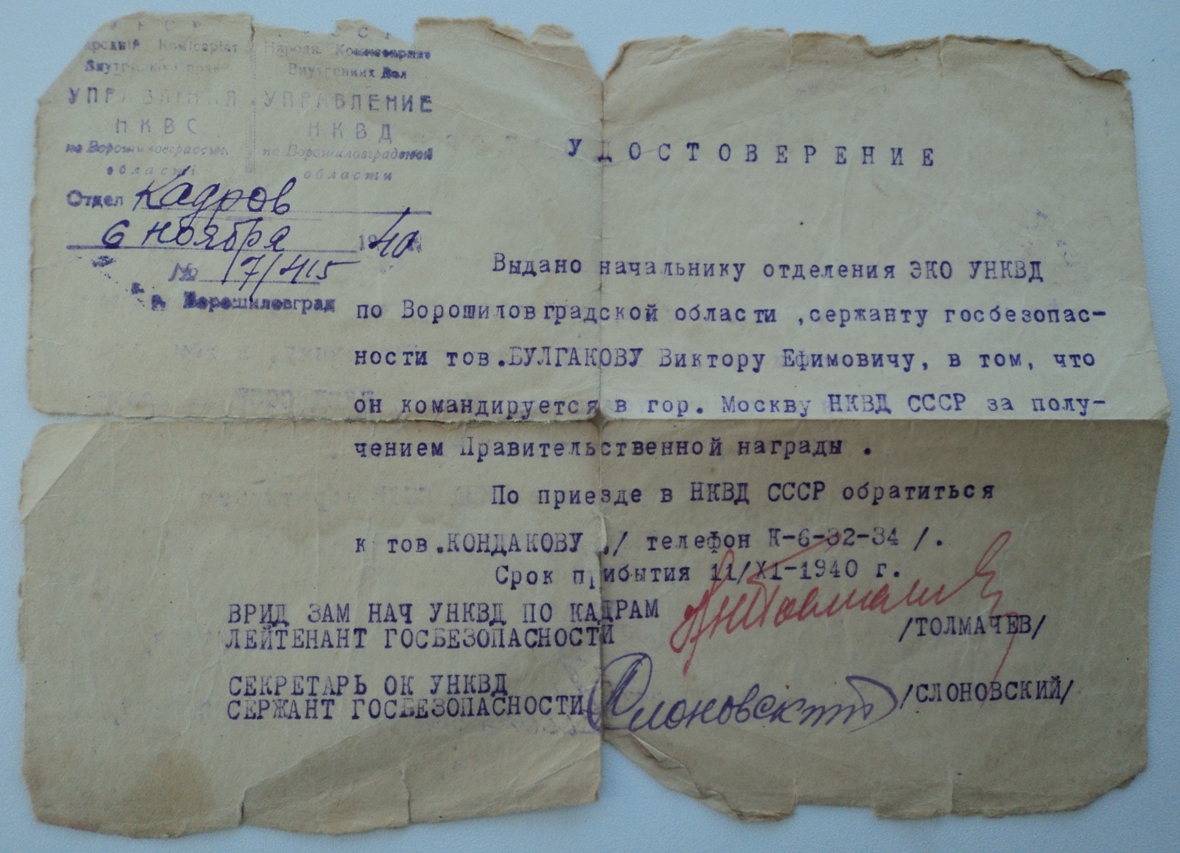 Народн. Комиссариат
Внутренних Дел
УПРАВЛІННЯ
НКВС
по Ворошиловградській
області
С С С Р
Народн. Комиссариат
Внутренних Дел
УПРАВЛЕНИЕ
НКВД
по Ворошиловградской
области
Отдел Кадров
6 ноября 1940
№ 17/415
г. Ворошиловград
УДОСТОВЕРЕНИЕ
Выдано начальнику отделения ЭКО УНКВД
по Ворошиловградской области ,сержанту госбезопас-
ности тов.БУЛГАКОВУ Виктору Ефимовичу, в том, что
он командируется в гор. Москву НКВД СССР за полу-
чением Правительственной награды .
По приезде в НКВД СССР обратиться
к тов.КОНДАКОВУ ./ телефон К-6-32-34 /.
Срок прибытия 11/XI-1940 г.
ВРИД ЗАМ НАЧ УНКВД ПО КАДРАМ
ЛЕЙТЕНАНТ ГОСБЕЗОПАСНОСТИ /ТОЛМАЧЕВ/
СЕКРЕТАРЬ ОК УНКВД
СЕРЖАНТ ГОСБЕЗОПАСНОСТИ Слоновский /СЛОНОВСКИЙ/